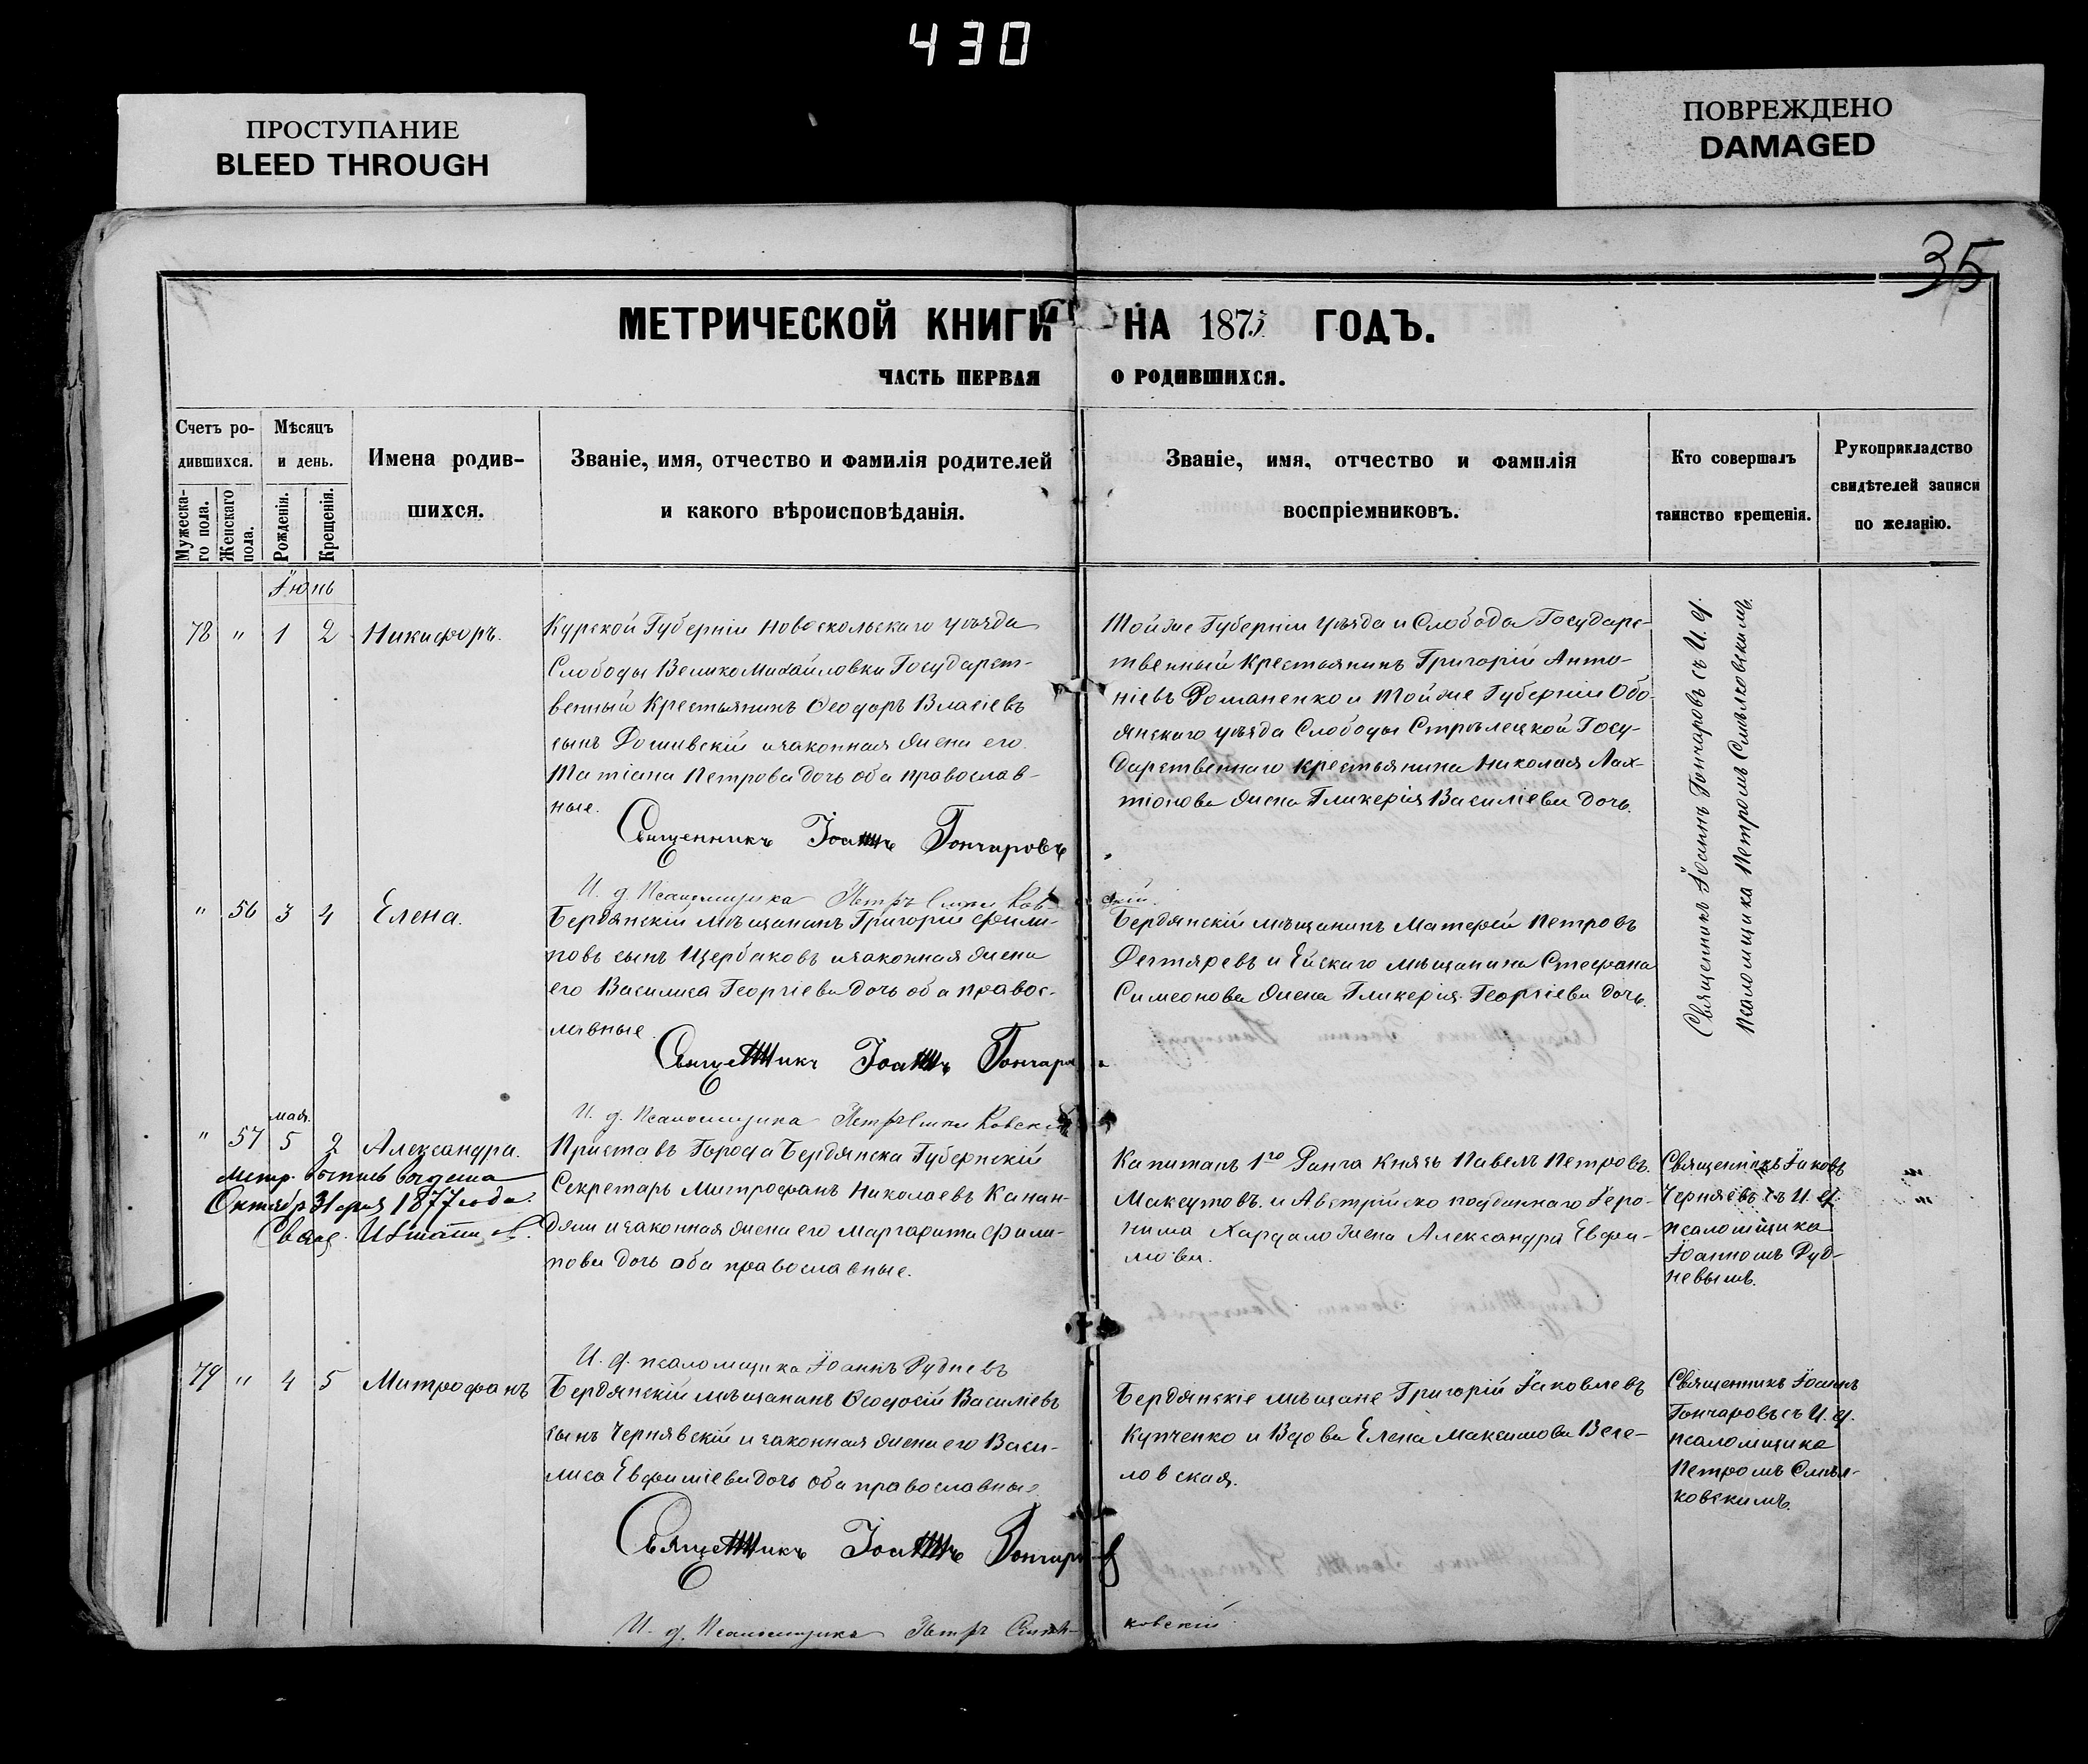 430
ПРОСТУПАНИЕ
BLEED THROUGH
ПОВРЕЖДЕНО
DAMAGED
35
МЕТРИЧЕСКОЙ КНИГИ НА 1875 ГОДЪ.
ЧАСТЬ ПЕРВАЯ О РОДИВШИХСЯ.
Счетъ ро-
дившихся.
Мужеска-
го пола.
Женскаго
пола.
Мѣсяцъ
и день.
Рожденія.
Крещенія.
Имена родив-
шихся.
Званіе, имя, отчество и фамилія родителей
и какого вѣроисповѣданія.
Званіе, имя, отчество и фамилія
воспріемниковъ.
Кто совершалъ
таинство крещенія.
Рукоприкладство
свидѣтелей записи
по желанію.
Іюнь
78 " 1 2 Никифоръ.
Курской Губерніи Новоскольскаго уѣзда
Слободы Великомихайловки Государст-
венный Крестьянинъ Ѳеодоръ Власіевъ
сынъ изаконная жена его
Татіана Петрова дочь оба православ-
ные.
Священникъ Іоаннъ Гончаровъ
И. д. Псаломщика Петръ Смѣлковскій.
Тойже Губерніи уѣзда и Слободы Государс-
твенный Крестьянинъ Григорій Анто-
ніевъ Романенко и Тойже Губерніи Обо-
янскаго уѣзда Слободы Стрѣлецкой Госу-
дарственнаго крестьянина Николая Лах-
тіонова жена Гликерія Василіева дочь.
Священникъ Іоаннъ Гончаровъ съ И. д.
псаломщика Петромъ Смѣлковскимъ.
" 56 3 4 Елена.
Бердянскій мѣщанинъ Григорій Фили-
повъ сынъ Щербаковъ изаконная жена
его Василиса Георгіева дочь оба правос-
лавные.
Священникъ Іоаннъ Гончаровъ
И. д. Псаломщика Петръ Смѣлковскій
Бердянскій мѣщанинъ Матфей Петровъ
Дегтяревъ и Ейскаго мѣщанина Стефана
Симеонова жена Гликерія Георгіева дочь.
мая.
" 57 5 2 Александра.
Метр. выпись выдана
Октября 31 дня 1877 года.
Свящ.
Приставъ Города Бердянска Губернскій
Секретарь Митрофанъ Николаевъ Канан-
дяли изаконная жена его Маргарита Фили-
пова дочь оба православные.
И. д. псаломщика Іоаннъ Рудневъ
Капитанъ 1го Ранга Князь Павелъ Петровъ.
Максутовъ. и Австрійско подданнаго Іеро-
нима Хардало жена Александра Евфи-
мова.
Священникъ Іаковъ
Черняевъ съ И. д.
псаломщика
Іоанномъ Руд-
невымъ.
79 " 4 5 Митрофанъ
Бердянскій мѣщанинъ Ѳеодосій Василіевъ
сынъ Чернявскій и законная жена его Васи-
лиса Евфиміева дочь оба православные.
Священникъ Іоаннъ Гончаровъ
И. д. Псаломщика Петръ Смѣлковскій
Бердянскіе мѣщане Григорій Іаковлевъ
Купченко и Вдова Елена Максимова Весе-
ловская.
Священникъ Іоаннъ
Гончаровъ съ И. д.
псаломщика
Петромъ Смѣл-
ковскимъ.